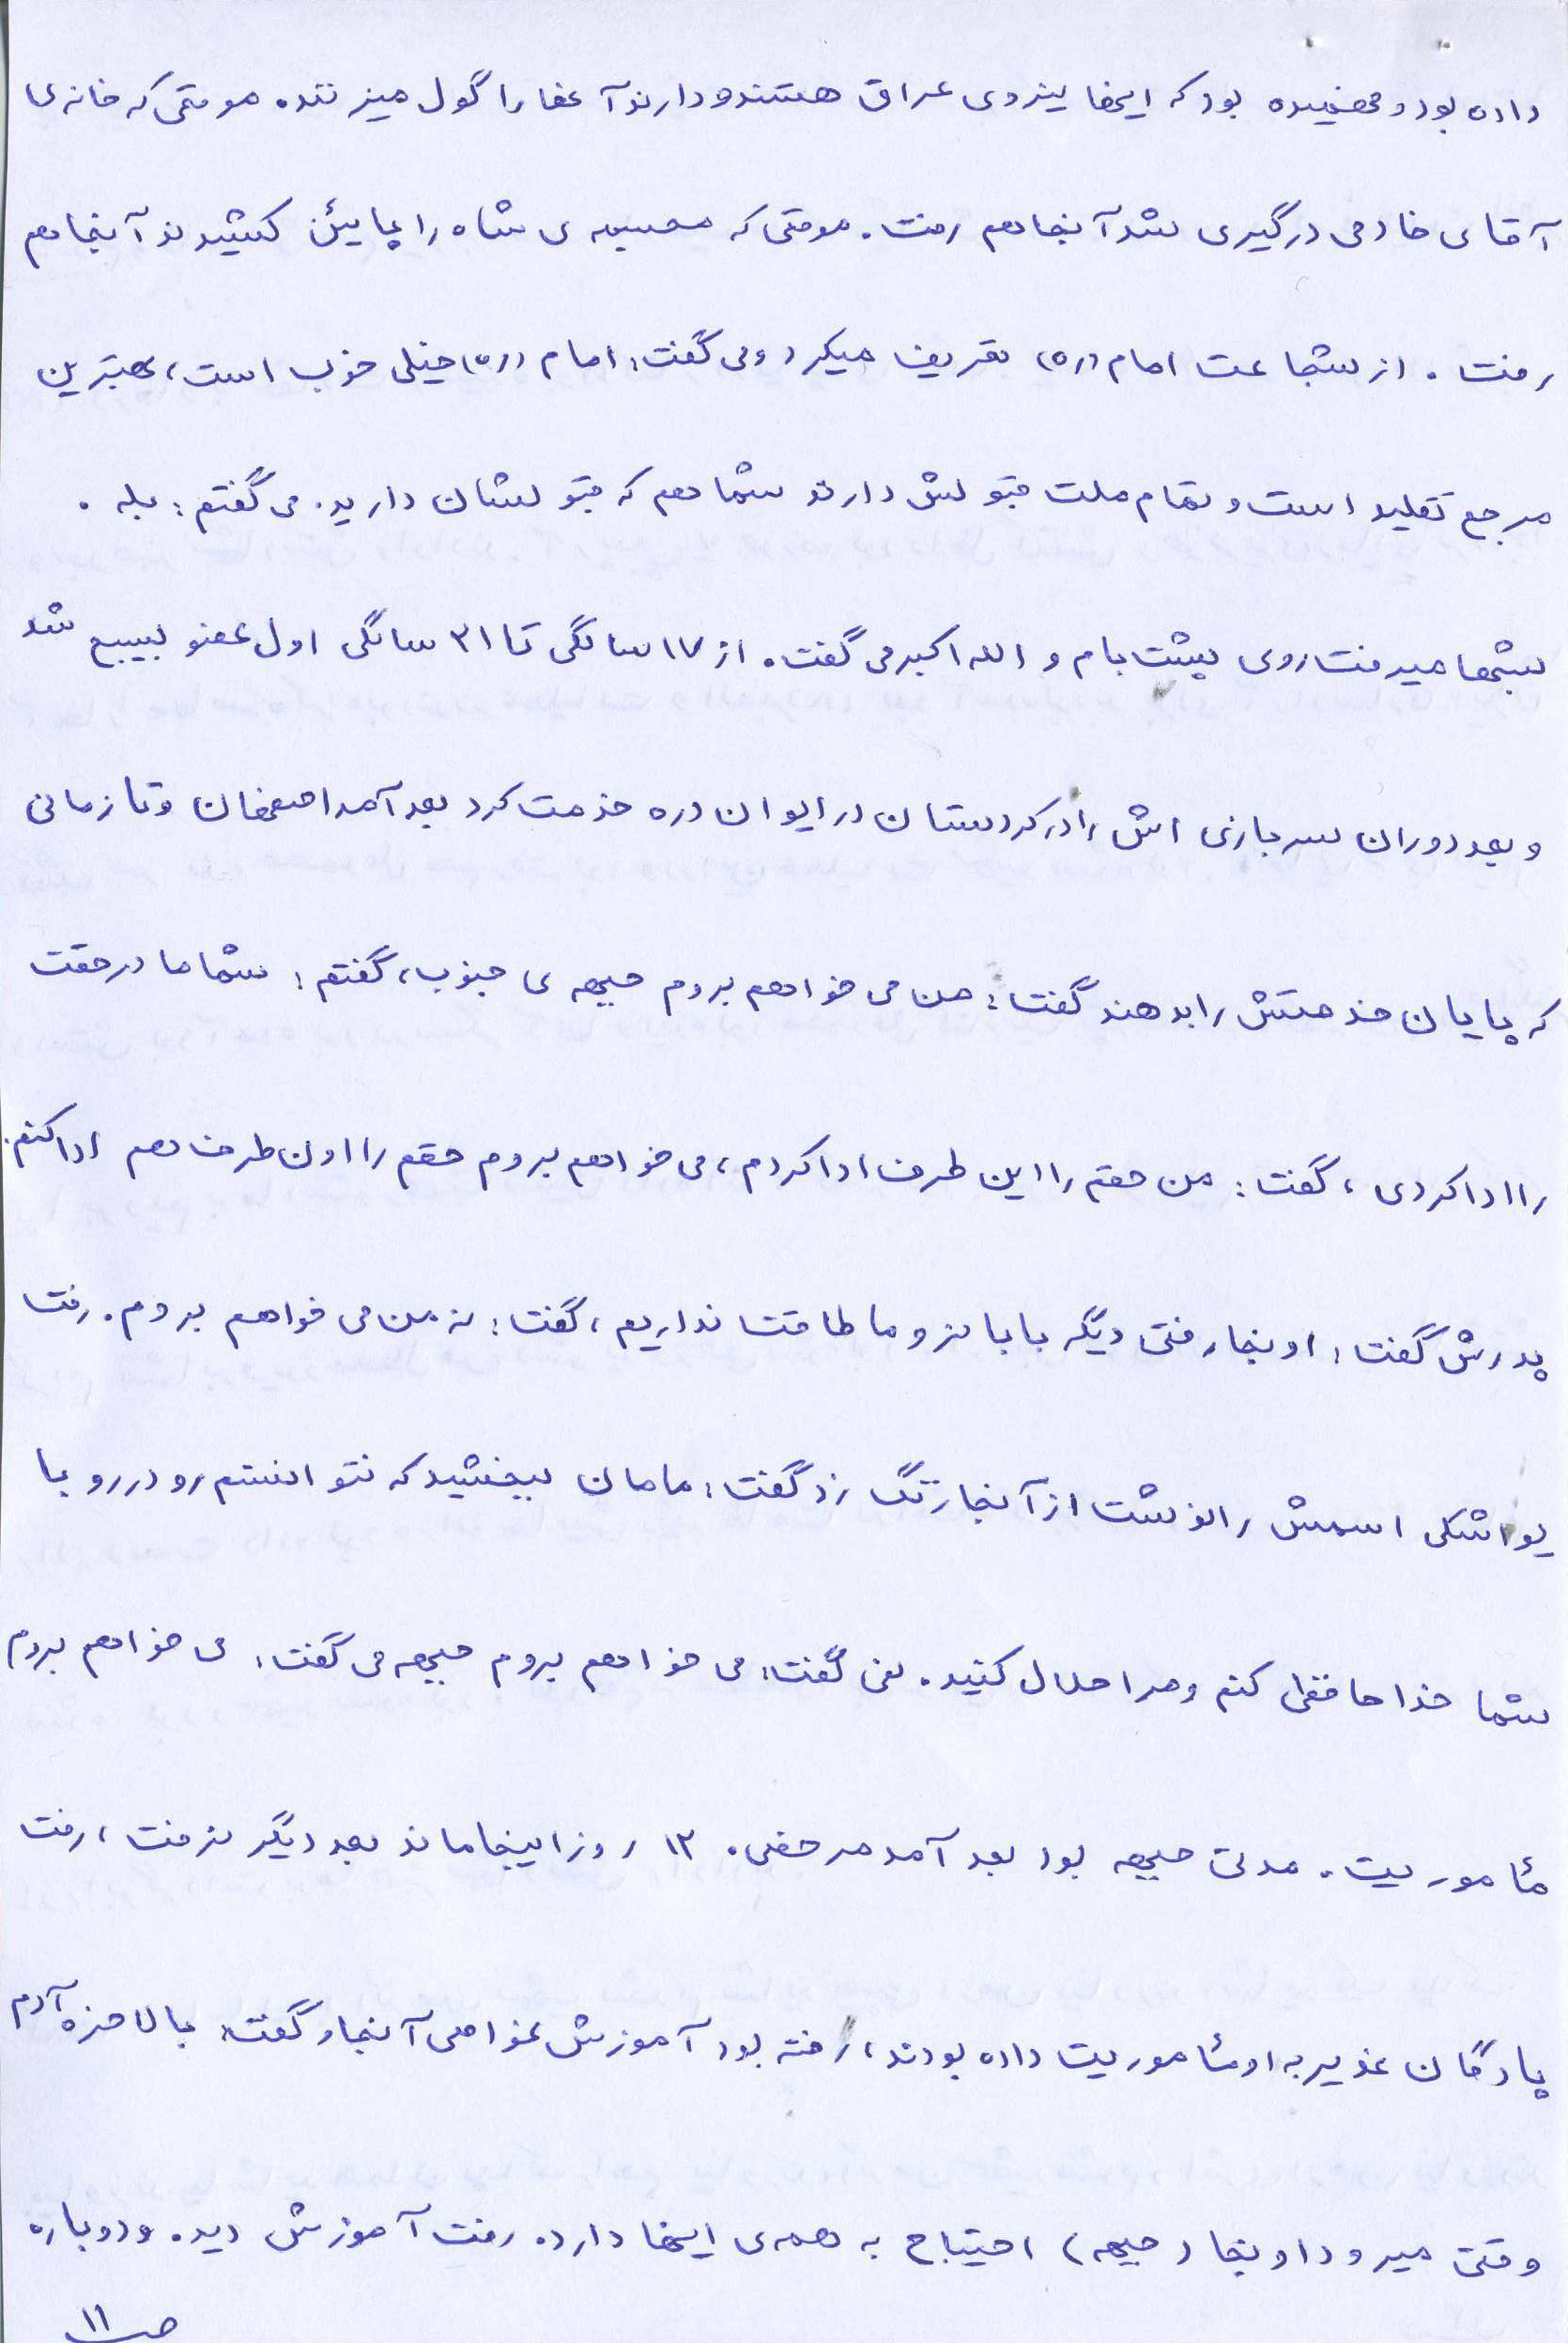 داده بود و فهمیده بود که اینها نیروی عراق هستند و دارند آنها را گول میزنند. موقتی که خانه‌ی
آقای خادمی درگیری شد آنجا هم رفت. موقتی که مجسمه ی شاه را پایئن کشیدند آنجا هم
رفت. از شجاعت امام (ره) تعریف میکرد و می گفت: امام (ره) خیلی خوب است، بهترین
مرجع تقلید است و تمام ملت قبولش دارند شما هم که قبولشان دارید. می گفتم: بله.
شبها میرفت روی پشت بام و الله اکبر می گفت. از ۱۷ سالگی تا ۲۱ سالگی اول عضو بسیج شد
و بعد دوران سربازی اش را در کردستان در ایوان دره خدمت کرد بعد آمد اصفهان و تا زمانی
که پایان خدمتش را بدهند گفت: من می خواهم بروم جبهه ی جنوب، گفتم: شما ما در حقت
را ادا کردی، گفت: من حقم را این طرف ادا کردم، می خواهم بروم حقم را اون طرف هم ادا کنم.
پدرش گفت: اونجا رفتی دیگه بابا نرو ما طاقت نداریم، گفت: نه من می خواهم بروم. رفت
یواشکی اسمش را نوشت از آنجا زنگ زد گفت: مامان ببخشید که نتوانستم رو در رو با
شما خداحافظی کنم و مرا حلال کنید. نمی گفت: می خواهم بروم جبهه می گفت: می خواهم بروم
مأموریت. مدتی جبهه بود بعد آمد مرخصی. ۱۲ روز اینجا ماند بعد دیگر نرفت، رفت
پادگان غدیر به او مأموریت داده بودند، رفته بود آموزش غواصی آنجا و گفت: بالاخره آدم
وقتی میرود اونجا (جبهه) احتیاج به همه‌ی اینها دارد. رفت آموزش دید. و دوباره
ص ۱۱